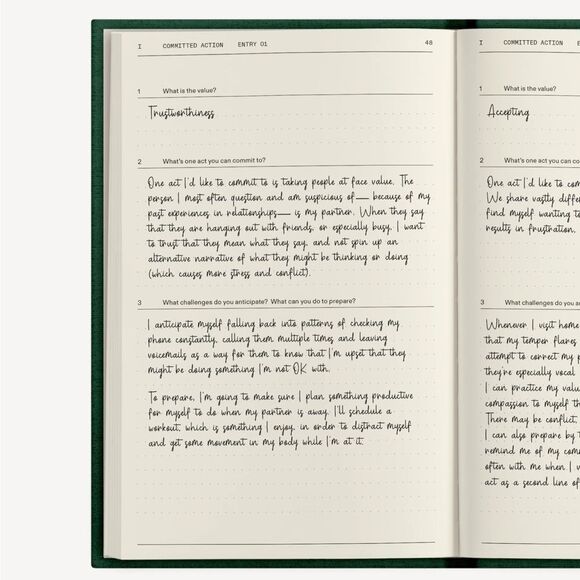 I COMMITTED ACTION ENTRY 01 48
1 What is the value?
Trustworthiness
2 What's one act you can commit to?
One act I'd like to commit to is taking people at face value. The
person I most often question and am suspicious of — because of my
past experiences in relationships — is my partner. When they say
that they are hanging out with friends, or especially busy, I want
to trust that they mean what they say, and not spin up an
alternative narrative of what they might be thinking or doing
(which causes more stress and conflict).
3 What challenges do you anticipate? What can you do to prepare?
I anticipate myself falling back into patterns of checking my
phone constantly, calling them multiple times and leaving
voicemails as a way for them to know that I'm upset that they
might be doing something I'm not OK with.
To prepare, I'm going to make sure I plan something productive
for myself to do when my partner is away. I'll schedule a
workout, which is something I enjoy, in order to distract myself
and get some movement in my body while I'm at it.
I COMMITTED ACTION E
1 What is the value?
Accepting
2 What's one act you can co
One act I'd like to com
We share vastly diffe
find myself wanting t
results in frustration.
3 What challenges do you a
Whenever I visit home
that my temper flares
attempt to correct my p
they're especially vocal
I can practice my valu
compassion to myself th
There may be conflict,
I can also prepare by t
remind me of my com
often with me when I v
act as a second line of